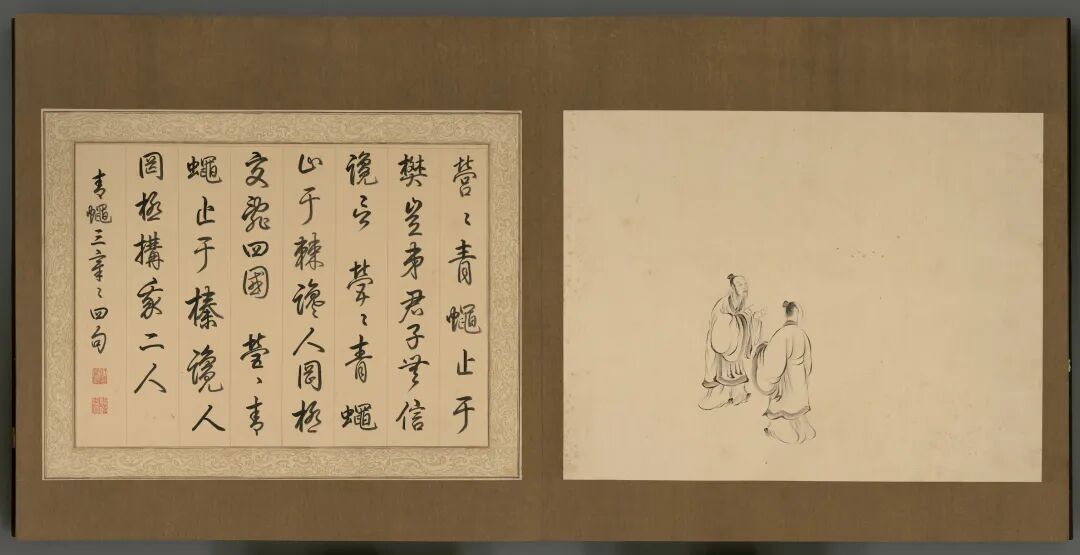 營〻青蠅止于
樊豈弟君子無信
讒言　營〻青蠅
止于棘讒人罔極
交亂四國　營〻青
蠅止于榛讒人
罔極構我二人
青蠅三章〻四句